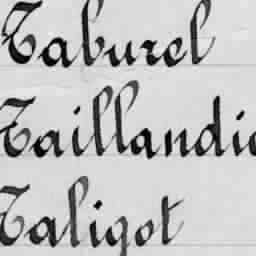 Taburel
Taillandie
Taligot